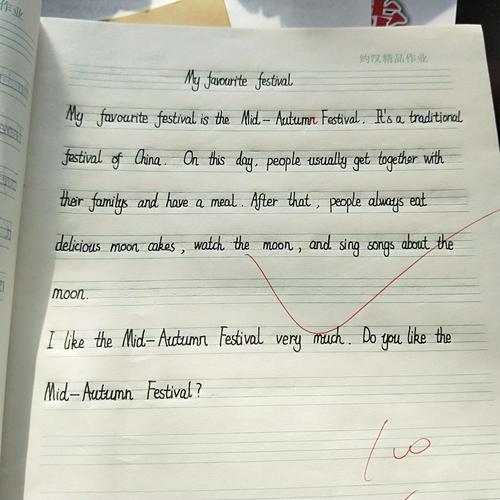 作业
约汉精品作业
My favourite festival
My favourite festival is the Mid-Autumn Festival. It's a traditional
festival of China. On this day, people usually get together with
their familys and have a meal. After that, people always eat
delicious moon cakes, watch the moon, and sing songs about the
moon.
I like the Mid-Autumn Festival very much. Do you like the
Mid-Autumn Festival?
100